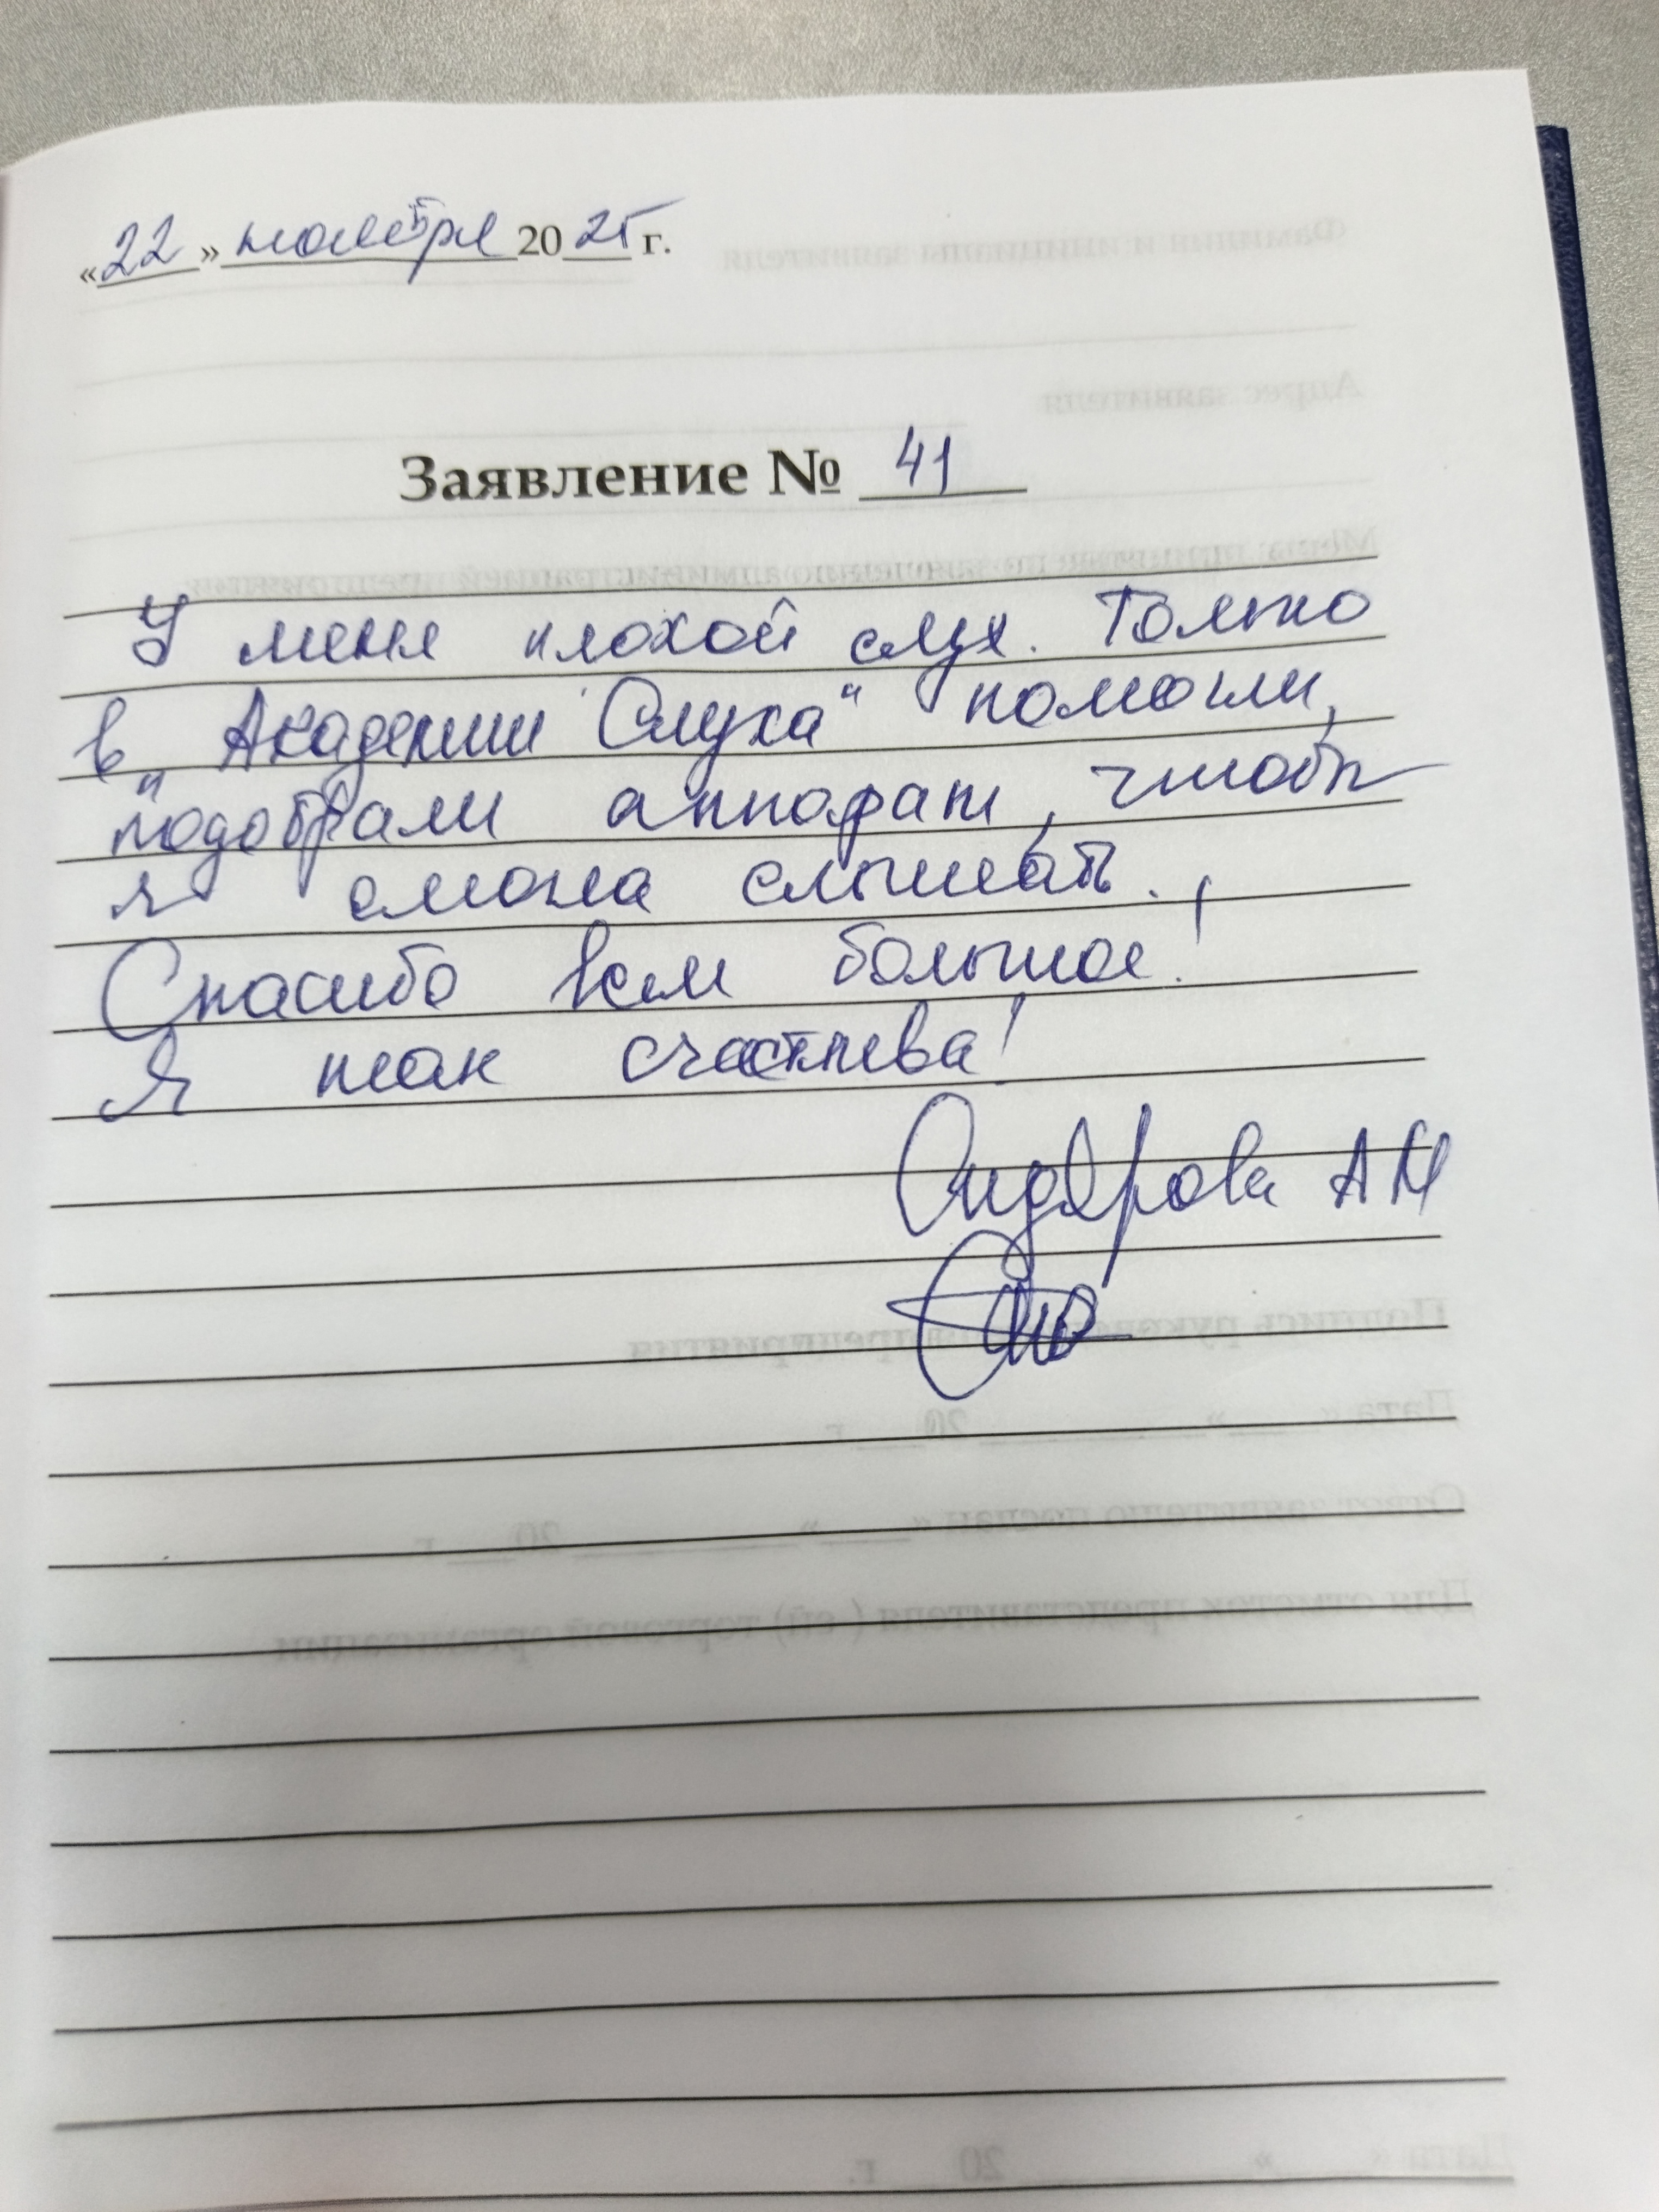 «22» ноября 2025 г.
Заявление № 41
У меня плохой слух. Только
в „Академии Слуха" помогли,
подобрали аппарат, чтобы
я смогла слышать.
Спасибо всем большое!
Я так счастлива!
АМ